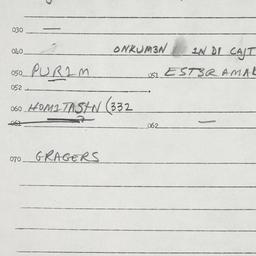 030 —
040 ONKUM3N IN DI CAJT
050 PURIM 051 ESTSR AMAL
052
060 HOM1TASHN (332
061 062 —
070 GRAGERS